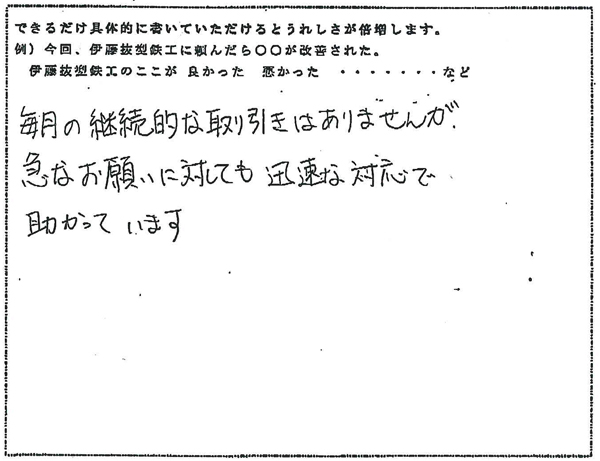 できるだけ具体的に書いていただけるとうれしさが倍増します。
例）今回、伊藤抜型鉄工に頼んだら〇〇が改善された。
伊藤抜型鉄工のここが 良かった 悪かった ・・・・・・・など
毎月の継続的な取り引きはありませんが、
急なお願いに対しても 迅速な対応で
助かって います